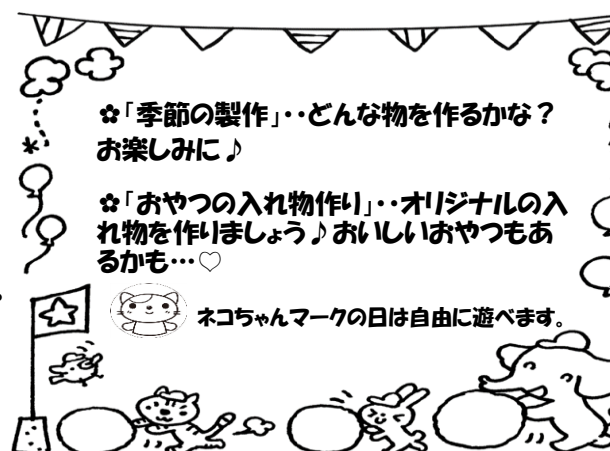 ✿「季節の製作」・・どんな物を作るかな？
お楽しみに♪
✿「おやつの入れ物作り」・・オリジナルの入
れ物を作りましょう♪おいしいおやつもあ
るかも…♡
ネコちゃんマークの日は自由に遊べます。